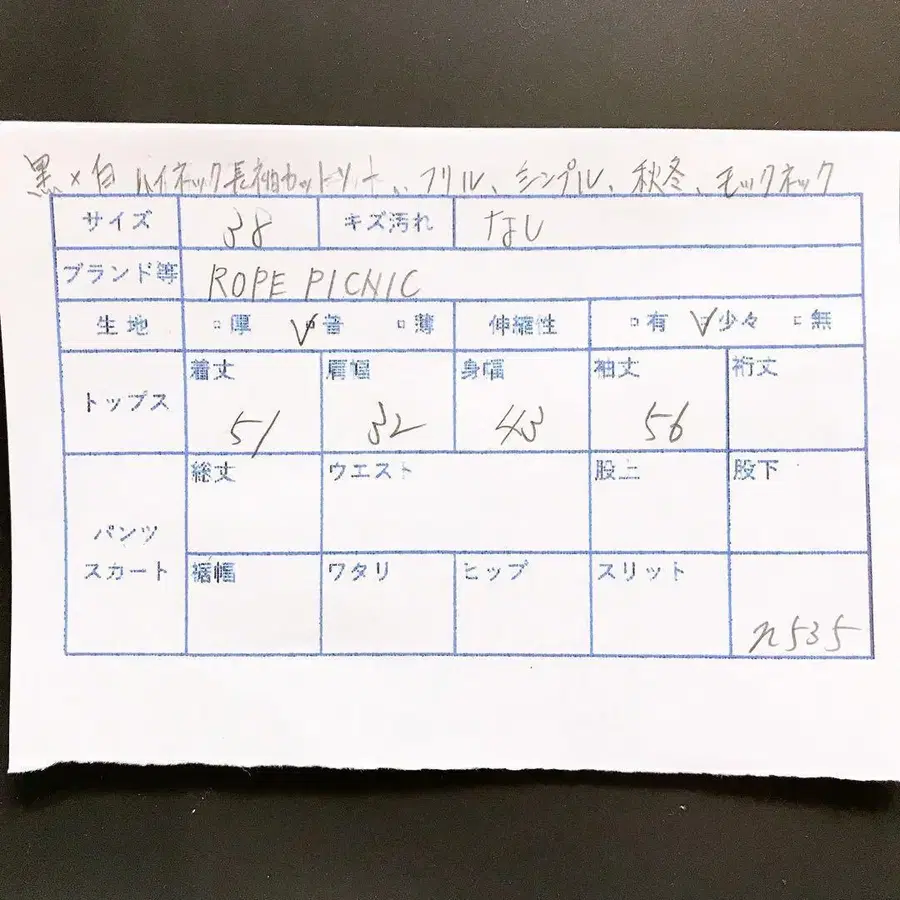 黒×白 ハイネック長袖カットソー、フリル、シンプル、秋冬、モックネック
サイズ 38 キズ汚れ なし
ブランド等 ROPE PICNIC
生地 □厚 ☑普 □薄 伸縮性 □有 ☑少々 □無
トップス 着丈 肩幅 身幅 袖丈 裄丈
51 32 43 56
総丈 ウエスト 股上 股下
パンツ
スカート 裾幅 ワタリ ヒップ スリット
n535